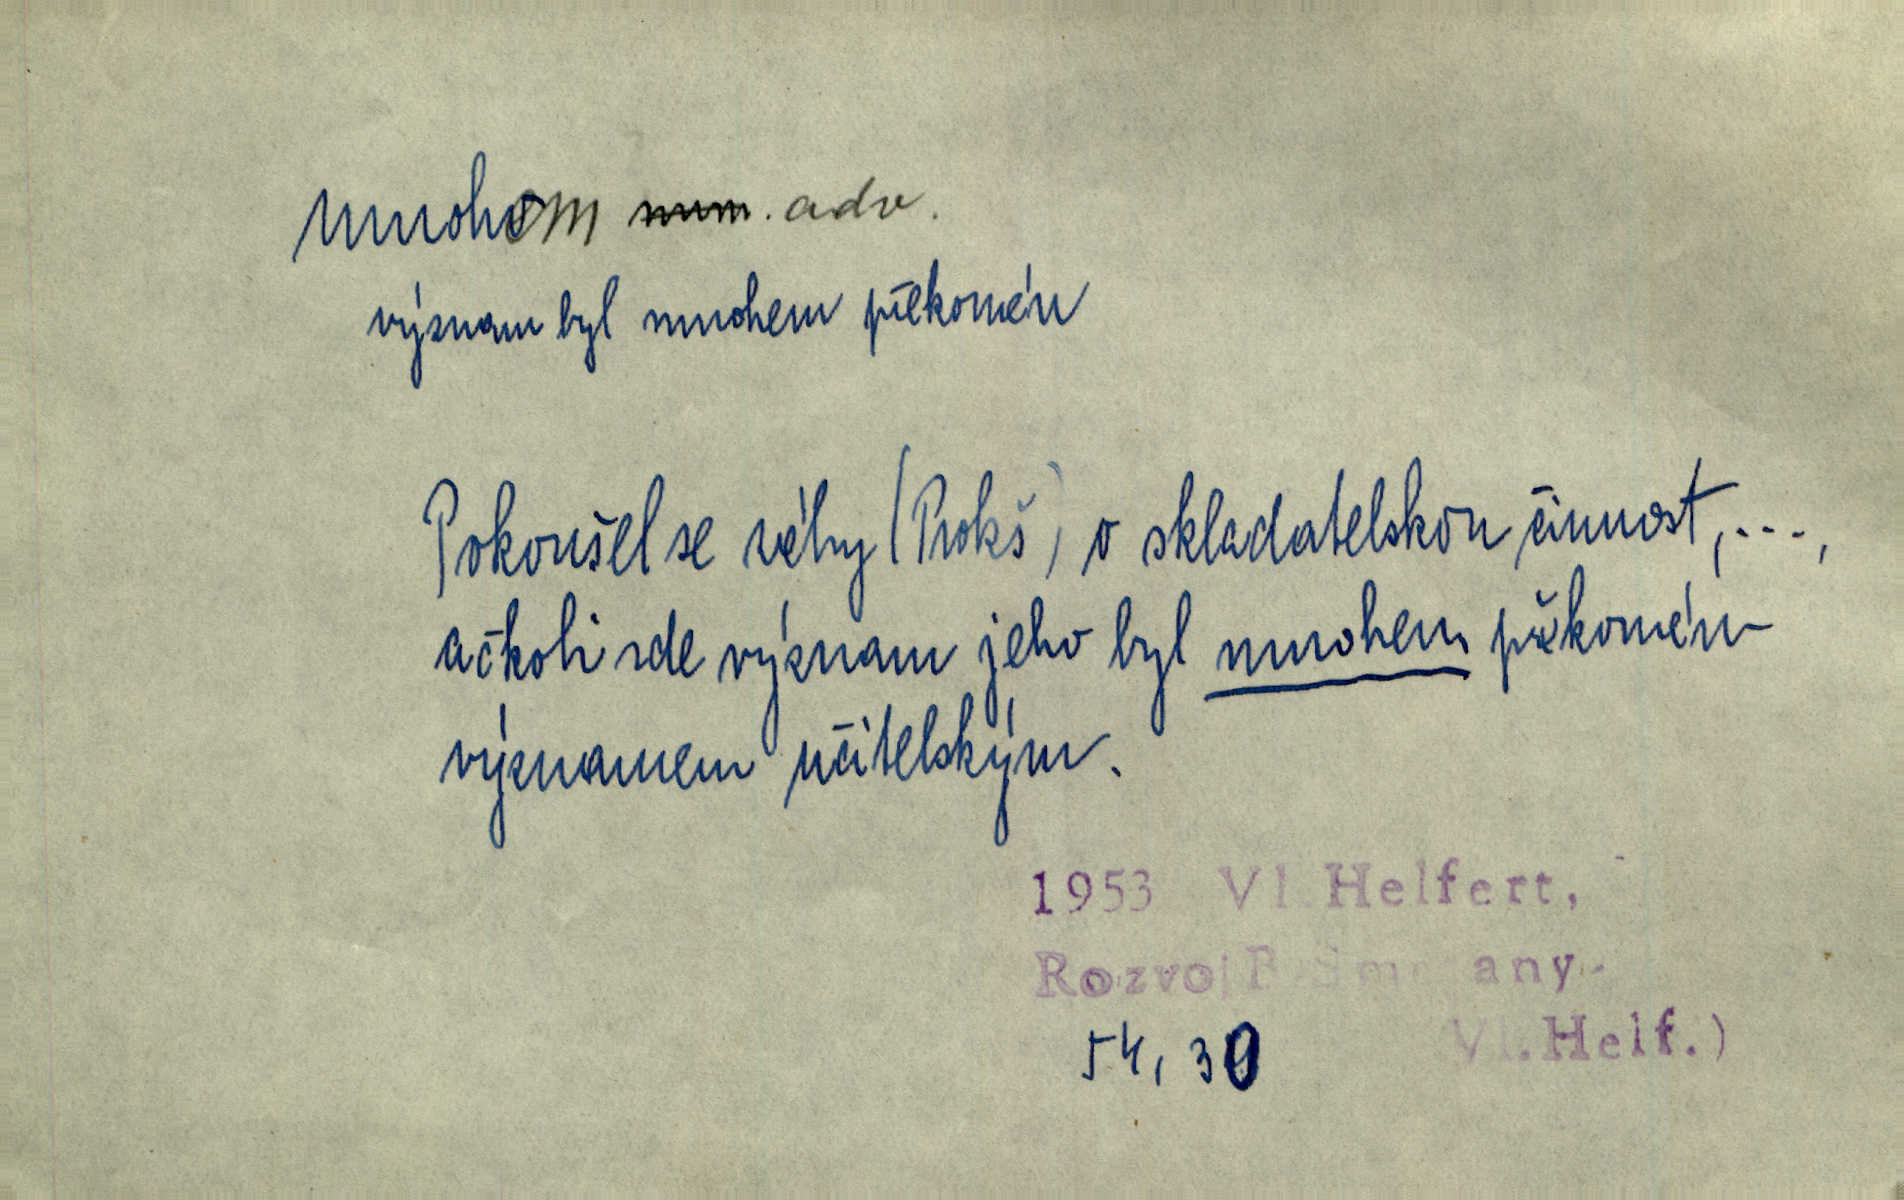 mnohem num. adv.
význam byl mnohem překonán
Pokoušel se záhy (Prokš) o skladatelskou činnost,...,
ačkoli zde význam jeho byl mnohem překonán
významem učitelským.
1953 Vl. Helfert,
Rozvoj B. Smetany
54, 30 Vl.Helf.)